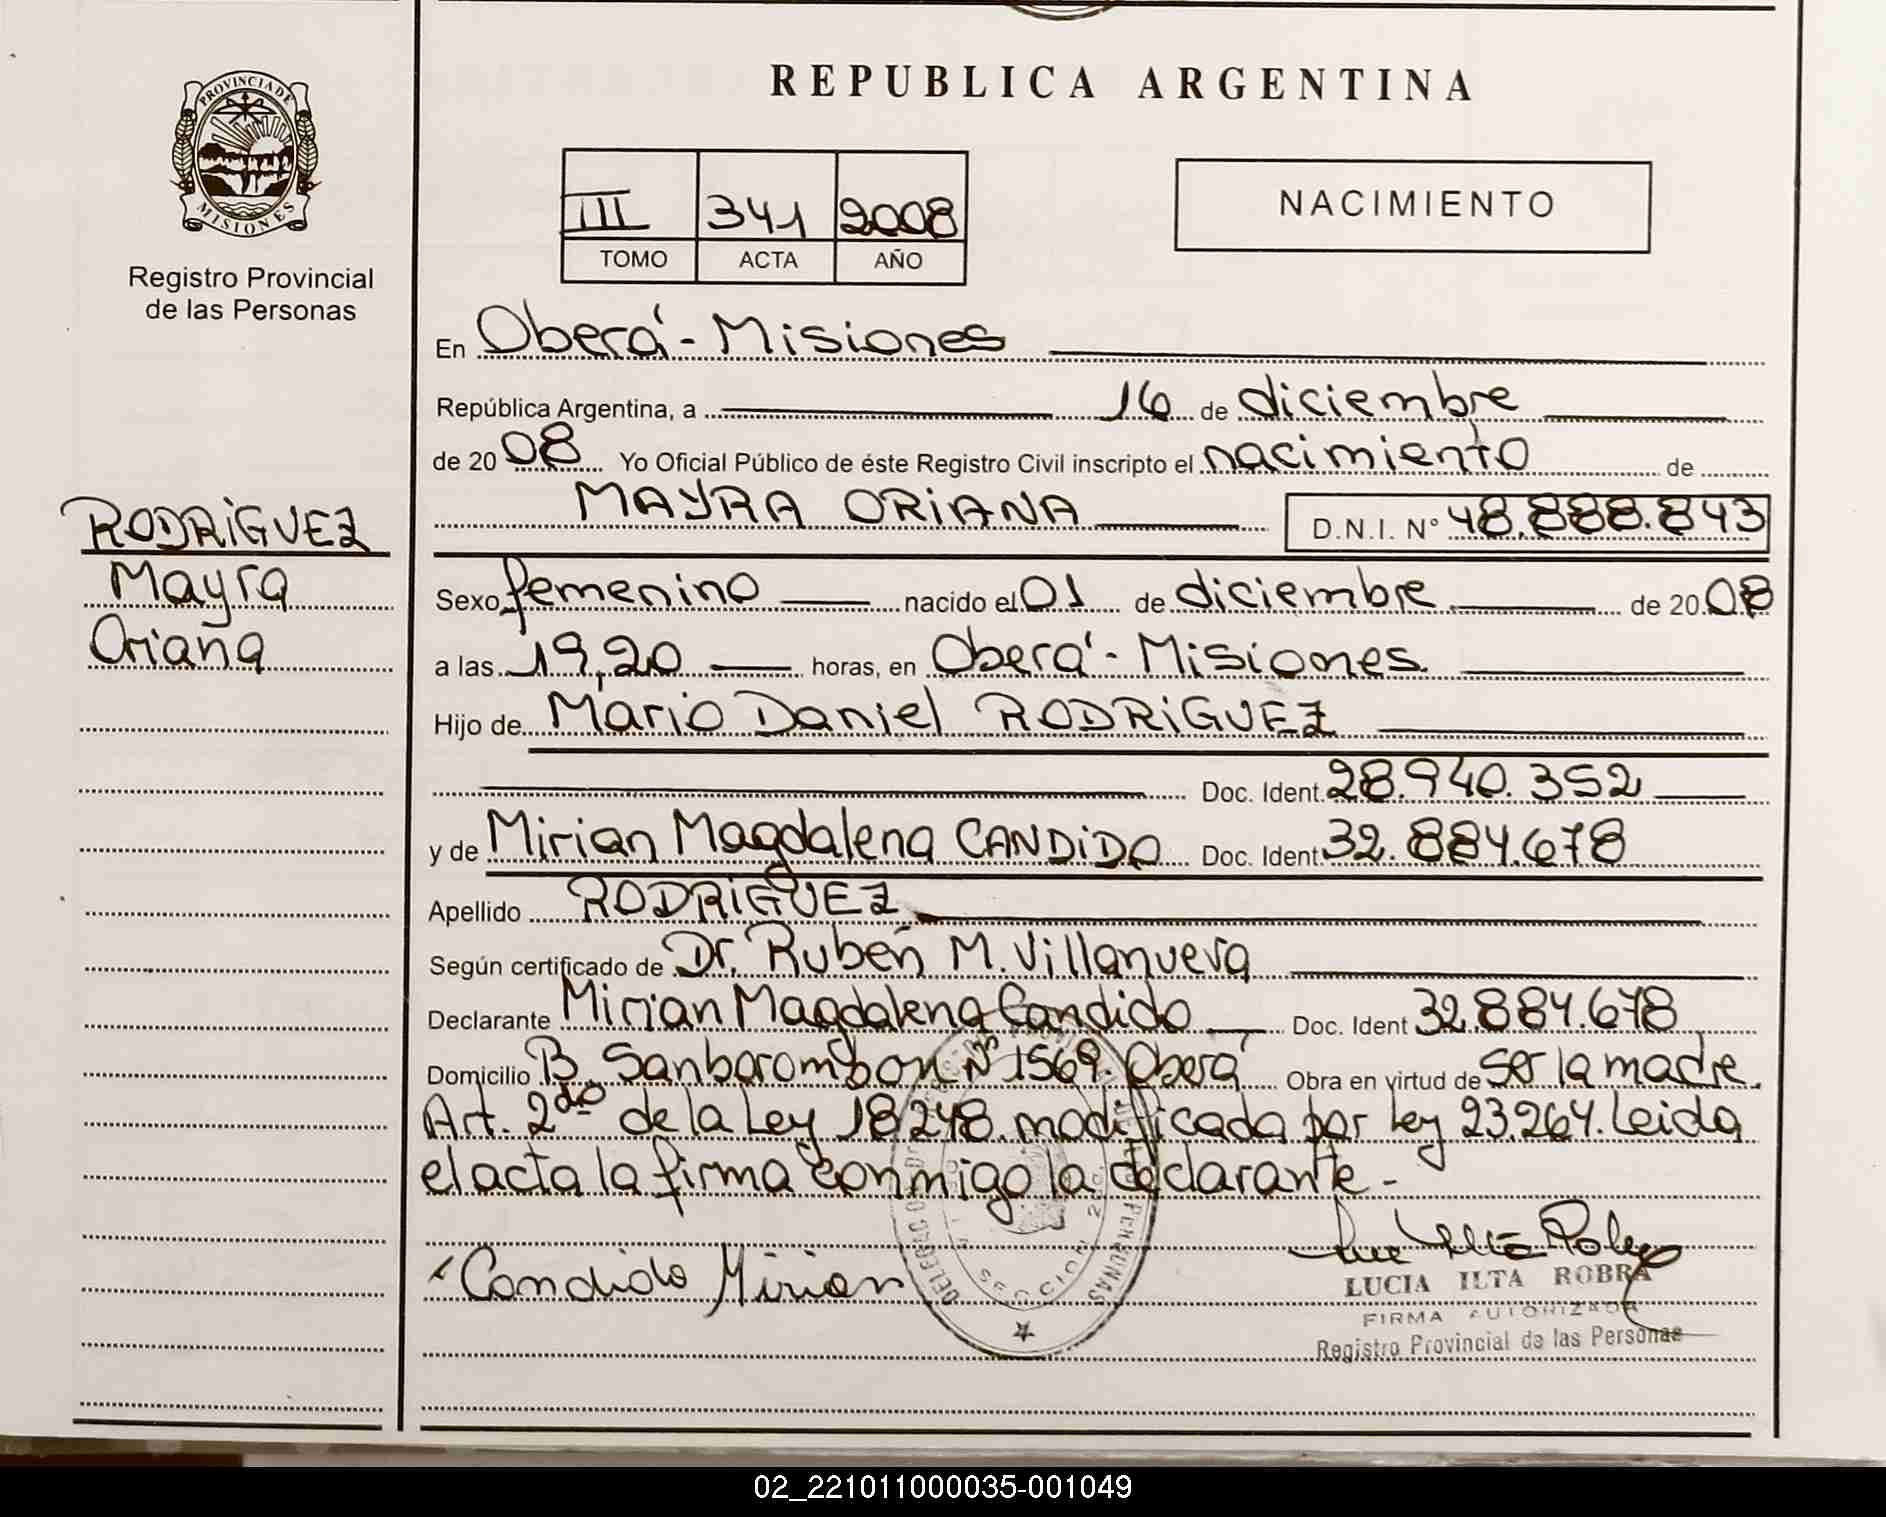 PROVINCIA DE
MISIONES
Registro Provincial
de las Personas
REPUBLICA ARGENTINA
III 341 2008
TOMO ACTA AÑO
NACIMIENTO
En Oberá - Misiones
República Argentina, a 16 de diciembre
de 2008 Yo Oficial Público de éste Registro Civil inscripto el nacimiento de
MAYRA ORIANA D.N.I. N° 48.888.843
RODRIGUEZ
Mayra
Oriana
Sexo femenino nacido el 01 de diciembre de 2008
a las 19,20 horas, en Oberá - Misiones.
Hijo de Mario Daniel RODRIGUEZ
Doc. Ident. 28.940.352
y de Mirian Magdalena CANDIDO Doc. Ident. 32.884.678
Apellido RODRIGUEZ
Según certificado de Dr. Ruben M. Villanueva
Declarante Mirian Magdalena Candido Doc. Ident 32.884.678
Domicilio B. Sanborombon N° 1569. Oberá Obra en virtud de ser la madre.
Art. 2do de la Ley 18248. modificada por Ley 23.264. Leida
el acta la firma conmigo la declarante -
Candido Mirian
LUCIA ILTA ROBRA
FIRMA AUTORIZADA
Registro Provincial de las Personas
02_221011000035-001049